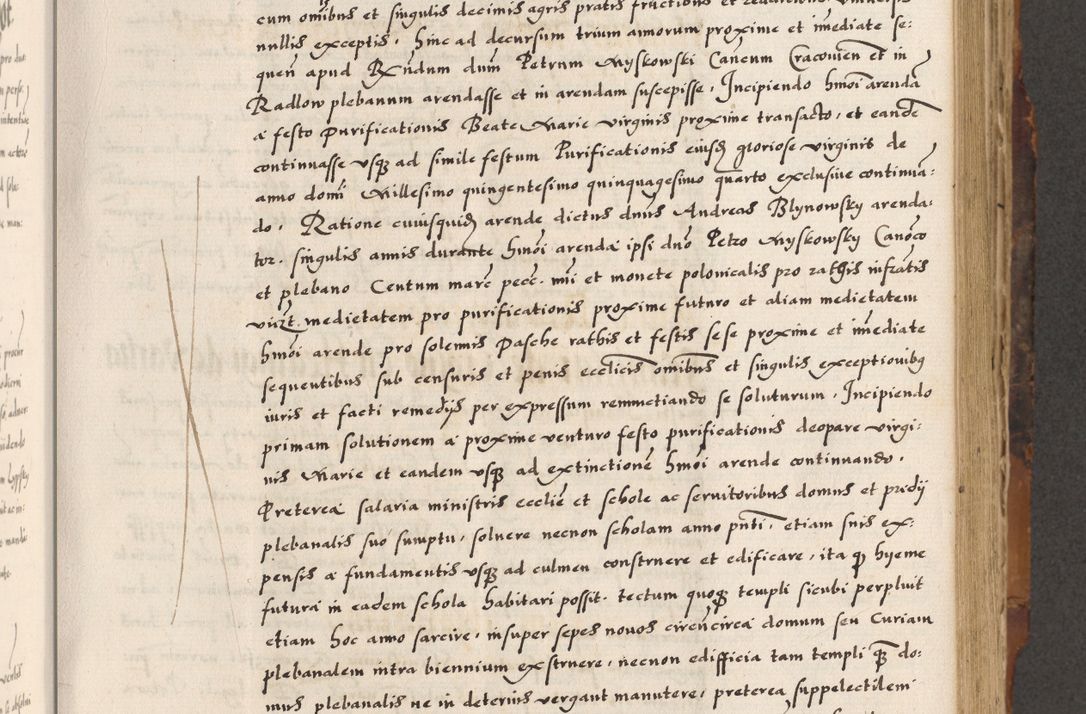 cum omibus et singulis decimis agris pratis fructibus et
nullis exceptis, hinc ad decursum trium annorum proxime et imediate se:
queñ apud Rñdum dum Petrum Myskowski Cancum Cracovieñ et in
Radlow plebanum arendasse et in arendam suscepisse, Incipiendo hmoi arenda
a festo Purificationis Beate Marie virginis proxime transacto, et eande
continuasse usq ad simile festum Purificationis eiusd gloriose virginis de
anno domi Millesimo quingentesimo quinquagesimo quarto exclusive continua:
do. Ratione cuiusquid arende dictus dnus Andreas Blynowsky arenda:
tor. singulis annis durante hmoi arenda ipsi dno Petro Myskowsky Canoco
et plebano Centum marc pecc. nui et monete polonicalis pro rathis infratis
vizt. medietatem pro purificationis proxime futuro et aliam medietatem
hmoi arende pro solemis Pasche rathis et festis sese proxime et imediate
sequentibus sub censuris et penis ecclicis omibus et singulis exceptionibq
iuris et facti remedijs per expressum renunctiando se soluturum. Incipiendo
primam solutionem a proxime venturo festo purificationis deopare virgi:
nis Marie et eandem usq ad extinctione hmoi arende continuando.
Preterea salaria ministris ecclie et schole ac servitoribus domus et predij
plebanalis suo sumptu, solvere necnon scholam anno pnti, etiam suis ex:
pensis a fundamentis usq ad culmen construere et edificare, ita q hyeme
futura in eadem schola habitari possit. tectum quoq templi sicubi perpluit
etiam hoc anno sarcire, insuper sepes novos circucirca domum seu Curiam
plebanalem intra biennium exstruere, necnon edifficia tam templi q do:
mus plebanalis ne in deterius vergant manutere, preterea suppelectilem